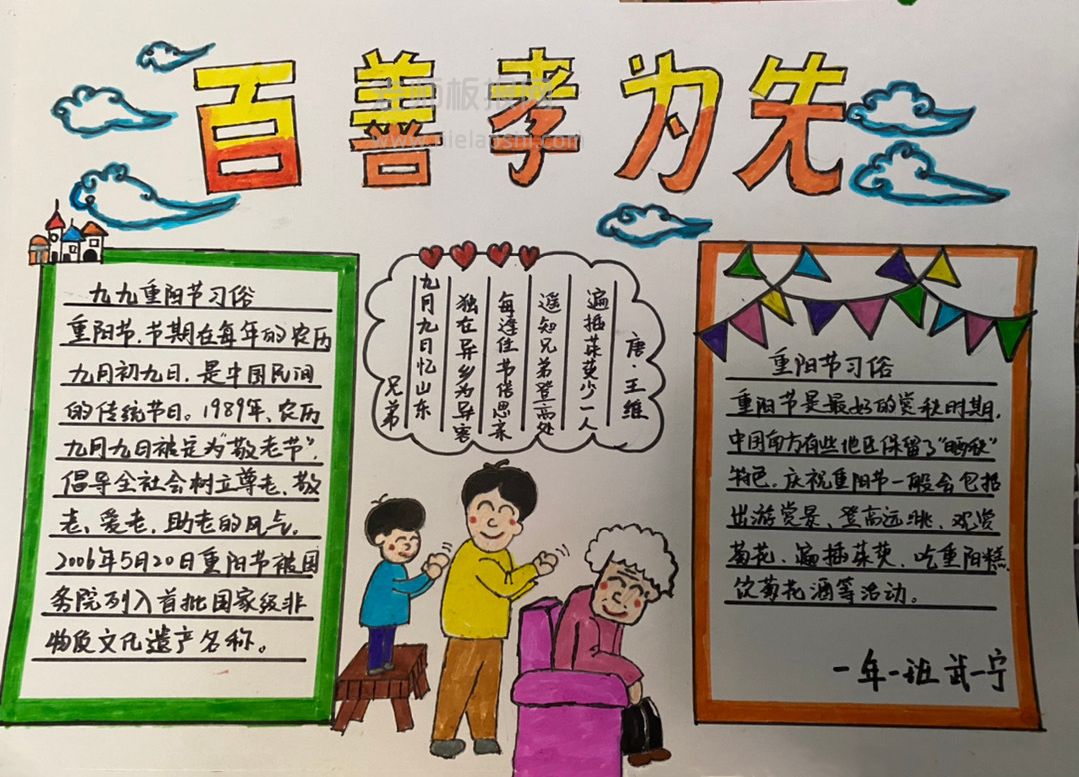 百善孝为先
九九重阳节习俗
重阳节,节期在每年的农历
九月初九日,是中国民间
的传统节日。1989年,农历
九月九日被定为“敬老节”,
倡导全社会树立尊老、敬
老、爱老、助老的风气。
2006年5月20日重阳节被国
务院列入首批国家级非
物质文化遗产名称。
九月九日忆山东
兄弟
唐·王维
独在异乡为异客
每逢佳节倍思亲
遥知兄弟登高处
遍插茱萸少一人
重阳节习俗
重阳节是最好的赏秋时期,
中国南方有些地区保留了“晒秋”
特色。庆祝重阳节一般会包括
出游赏景、登高远眺、观赏
菊花、遍插茱萸、吃重阳糕
饮菊花酒等活动。
一年一班 武一宁